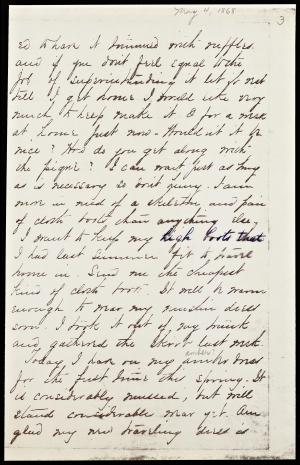 May 4, 1868
3
ed to have it trimmed with ruffles
and if you don't feel equal to the
job of superintending it let it rest
till I get home I would like very
much to help make it & for a week
at home just now. Would it be
nice? How do you get along with
the pique? I can wait just as long
as is necessary so don't hurry. I am
more in need of a skeleton and pair
of cloth boots than anything else.
I want to keep my high boots that
I had last summer fit to travel
home in. Send me the cheapest
kind of cloth boots. It will be warm
enough to wear my muslin dress
soon. I took it out of my trunk
and gathered the skirt last week.
Today I have on my amber
dress
for the first time this spring. It
is considerably mussed, but will
stand considerable wear yet. Am
glad my new traveling dress is